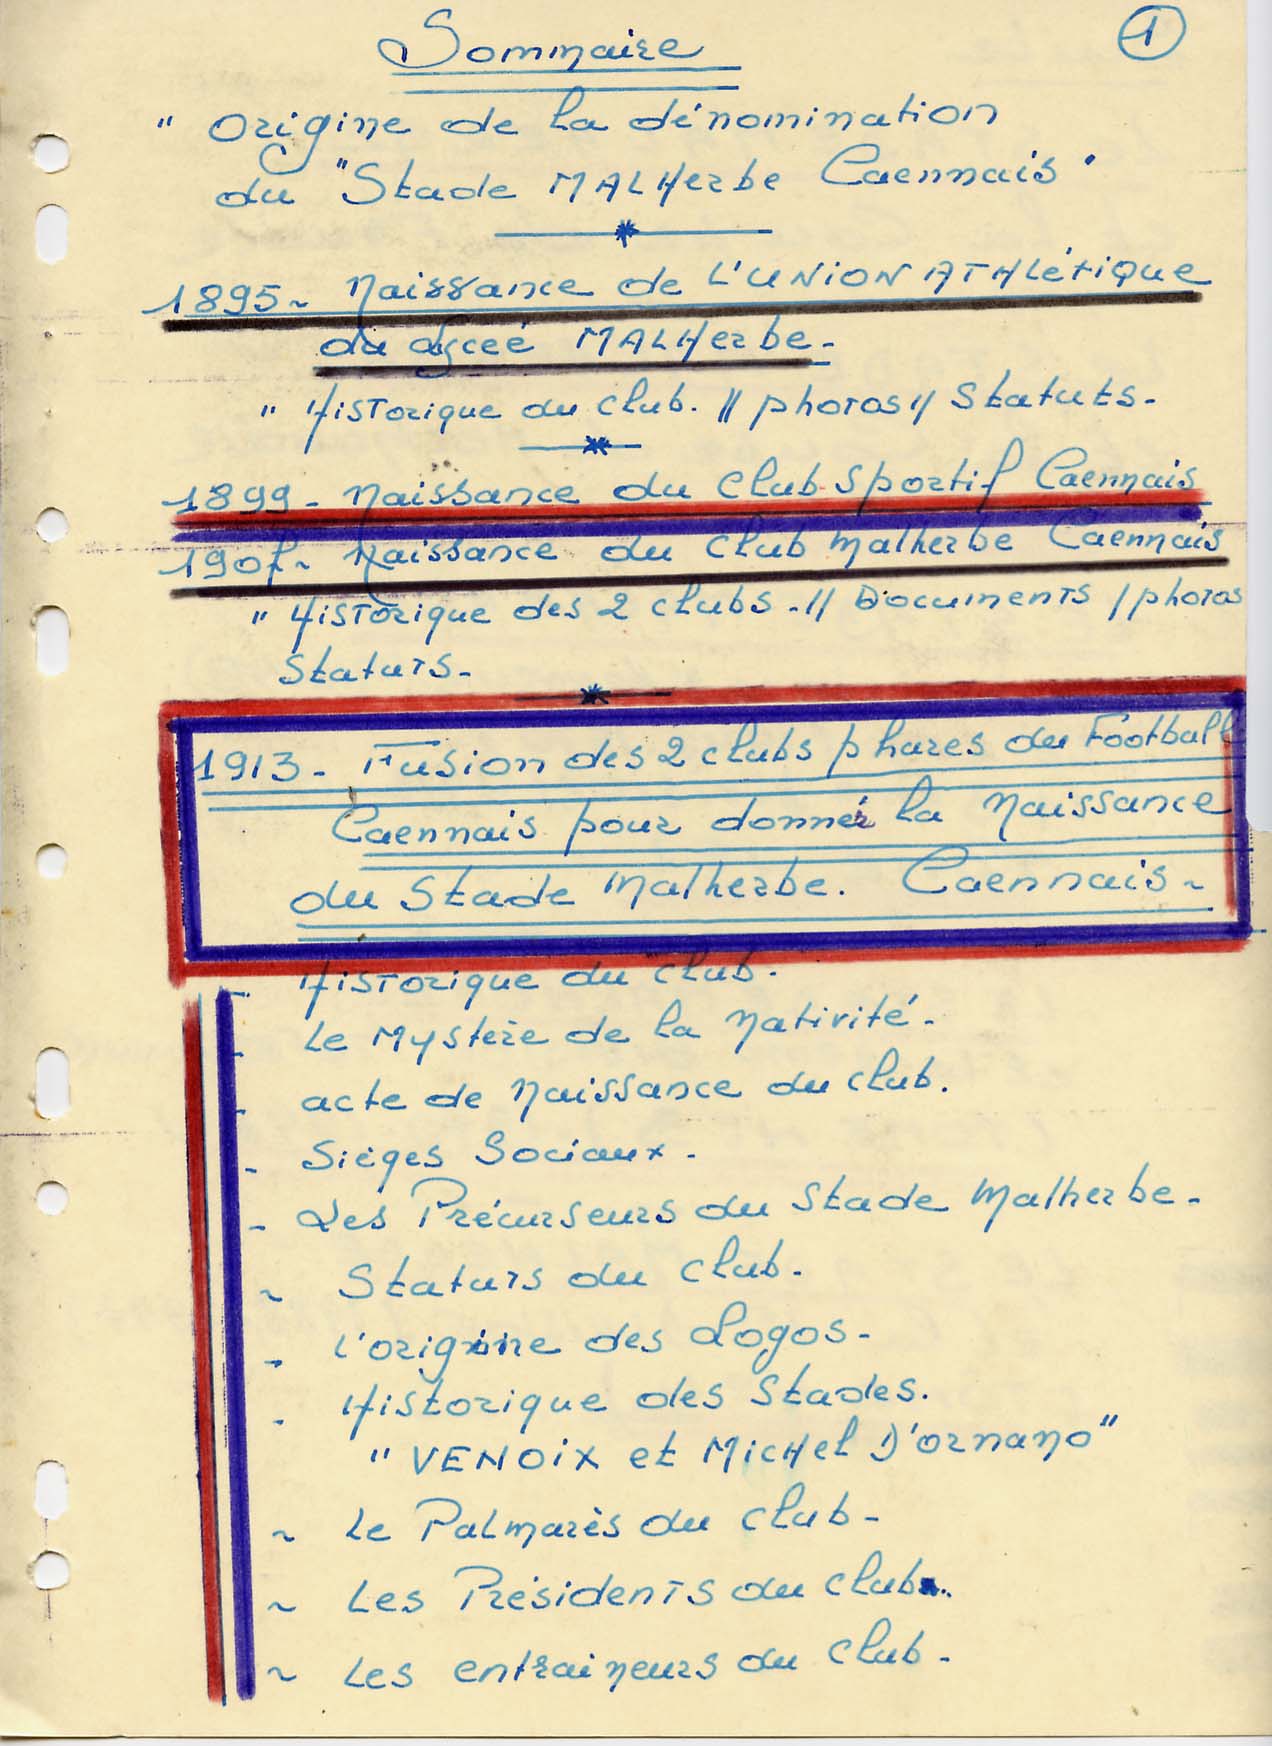 Sommaire
1
" Origine de la dénomination
du "Stade MALHerbe Caennais"
1895 ~ Naissance de L'UNION ATHLÉTIQUE
du Lycée MALHerbe -
" Historique du club. // photos // Statuts -
1899 - Naissance du Club Sportif Caennais
Naissance du Club Malherbe Caennais
" Historique des 2 clubs - // Documents / photos
Statuts -
1913 - Fusion des 2 clubs phares du Football
Caennais pour donner la Naissance
du Stade Malherbe. Caennais ~
- Historique du club.
- Le Mystère de la Nativité -
- acte de Naissance du club.
- Sièges Sociaux -
- Les Précurseurs du Stade Malherbe -
~ Statuts du Club -
- L'origine des Logos -
- Historique des Stades.
" VENOIX et MICHEL D'ORNANO "
~ Le Palmarès du club -
~ Les Présidents du club.
~ Les entraineurs du club -